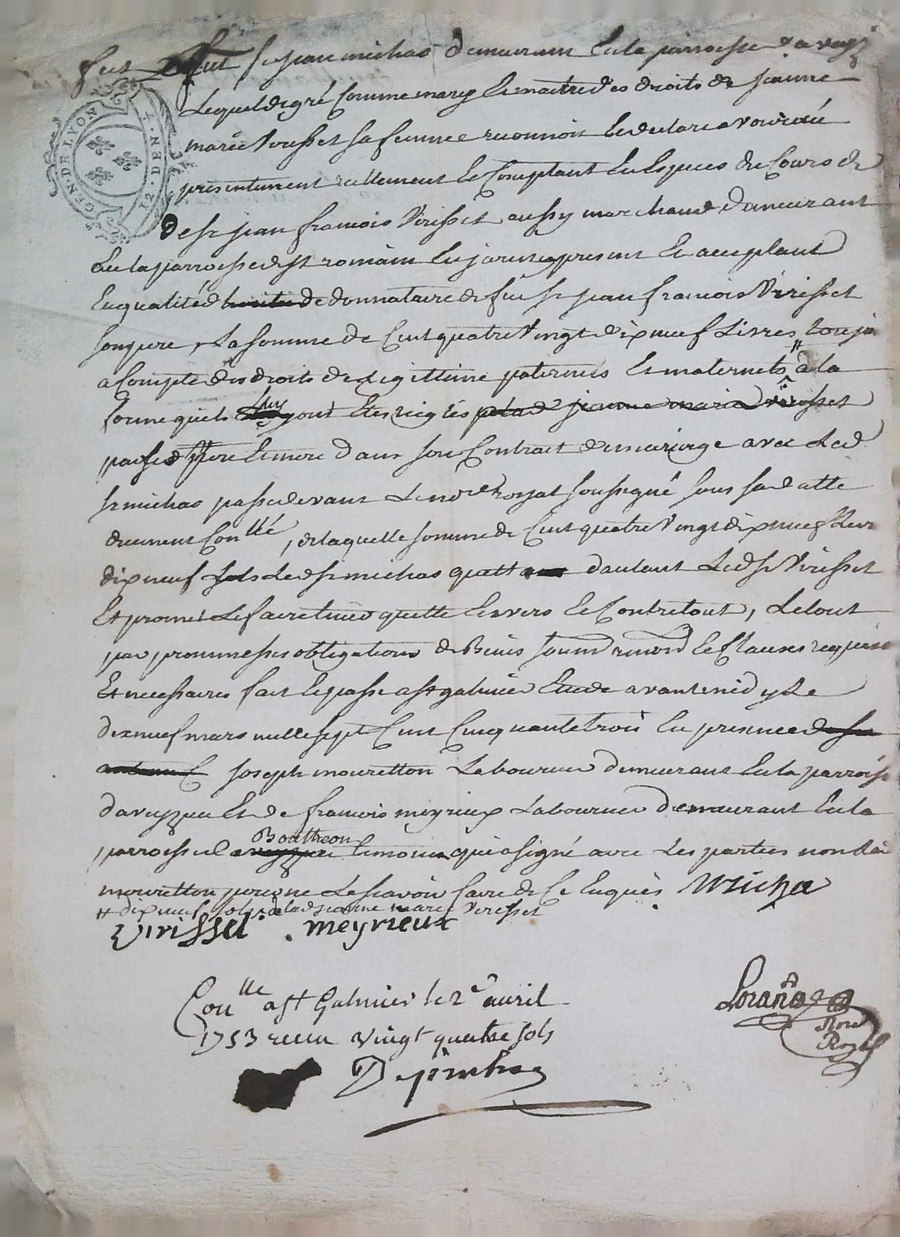 fut sr jean michas demeurant en la parroisse d'aveyz
Lequel de gré comme mary et maitre des droits de jeanne
marie virisset sa femme reconnoit et declare avoir eü
presentement reellement et comptant en Especes de Cours de
GEN. DE LYON 12. DEN.
de sr jean francois Virisset aussy marchand demeurant
En la parroisse de st romain En jarest present et acceptant
En qualité de donnataire de feu sr jean francois Virisset
son pere, La somme de Cent quatre Vingt dix neuf Livres
a Compte des droits de Legittime paternels Et maternels # a la
forme quels luy sont
pere Et mere dans son Contract de mariage avec Led
sr michas passé devant Le nore Royal soussigné sous sa datte
deuement Conllé, de laquelle somme de Cent quatre Vingt dix neuf Livres
dix neuf sols Led sr michas quitte dautant Led sr Virisset
Et promet Le faire tenir quitte Envers Et Contre tout, Le tout
par prommesses obligations de Biens soumon renonon et Clauses requises
Et necessaires fait Et passé a st galmier Etude avant midy Le
dix neuf mars mille sept Cent Cinquante trois En presence de
joseph mouretton Laboureur demeurant En la parroisse
d'aveyzieu Et de francois meyrieux Laboureur demeurant En la
parroisse de Boutheon temoins qui a signé avec Les parties non led
mouretton pour ne Le scavoir faire de Ce Enquis Micha
# dix neuf sols de lad jeanne marie Virisset
Virisset . meyrieux
Conlle a st Galmier le 2e avril
1753 recu vingt quatre sols
Nore
Royal